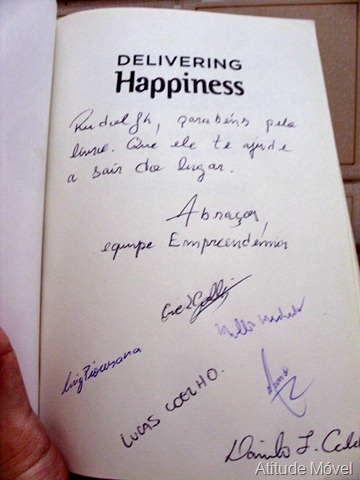 DELIVERING
Happiness
Rudolfh, parabéns pelo
livro. Que ele te ajude
a sair do lugar.
Abraços,
equipe Empreendemia
Luiz Piovesana
LUCAS COELHO.
Danilo
Atitude Móvel